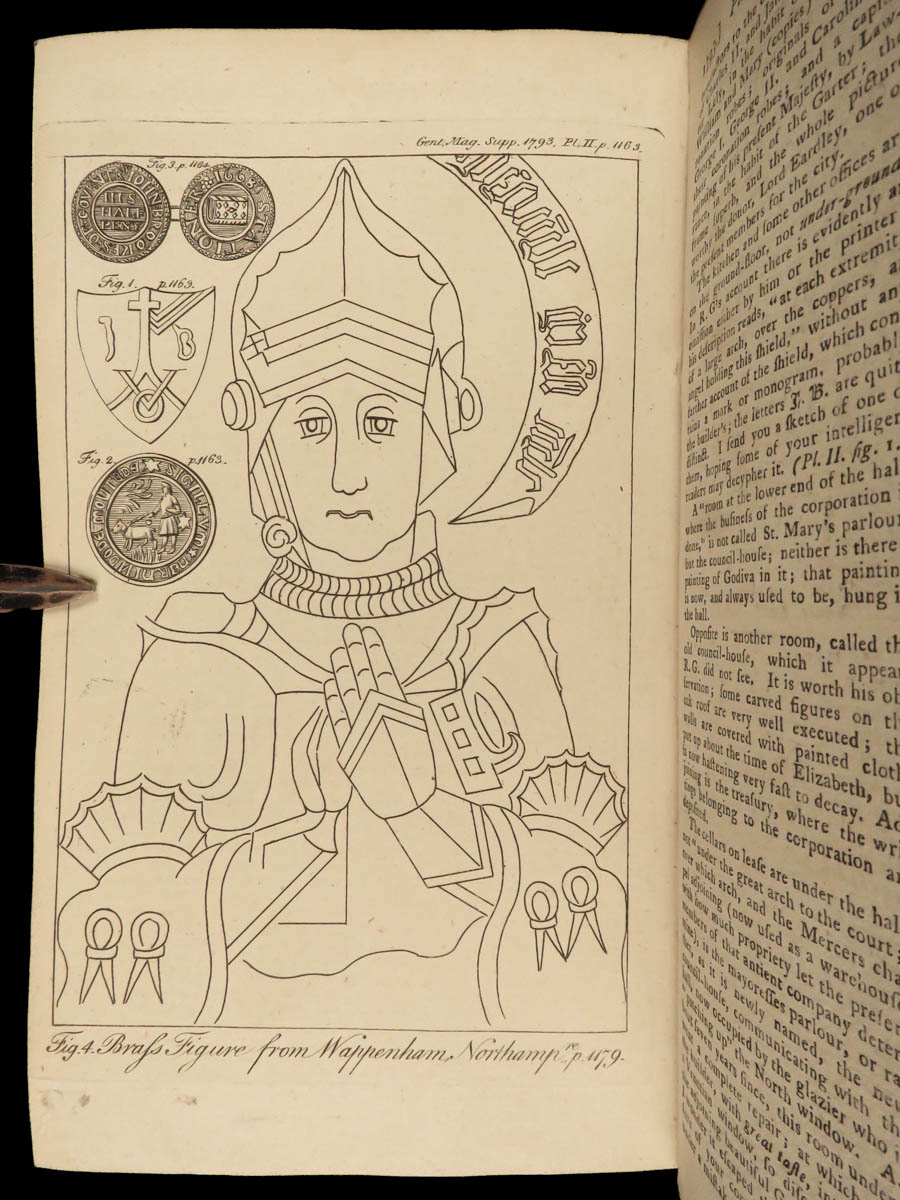 Gent. Mag. Supp. 1793. Pl. II. p. 1163.
Fig. 3. p. 1164
HIS
HALF
PENY
1668
STATIONER
Fig. 1. p. 1163.
J B
Fig. 2. p. 1163.
SIGILLVM
Fig. 4. Braſs Figure from Wappenham, Northamp.re p. 1179.
more to the
Charles II. and Ja
Lely, in the habit o
William and Mary (copies)
nation robes; originals o
George I. George II. and Caroline
their coronation robes; and a capi
painting of his preſent Majeſty, by Law-
rance, in the habit of the Garter; the
frame ſuperb, and the whole picture
worthy the donor, Lord Eardley, one o
the preſent members for the city.
The kitchen and ſome other offices ar
on the ground-floor, not under-ground
In R. G's account there is evidently a
omiſſion either by him or the printer
his deſcription reads, "at each extremit
of a large arch, over the coppers, a
angel holding this ſhield," without an
farther account of the ſhield, which con
tains a mark or monogram, probabl
the builder's; the letters J. B. are quit
diſtinct. I ſend you a ſketch of one o
them, hoping ſome of your intelligen
readers may decypher it. (Pl. II. fig. 1.
A "room at the lower end of the hal
where the buſineſs of the corporation i
done," is not called St. Mary's parlour
but the council-houſe; neither is there
painting of Godiva in it; that paintin
is now, and always uſed to be, hung i
the hall.
Oppoſite is another room, called th
old council-houſe, which it appear
R. G. did not ſee. It is worth his ob
ſervation; ſome carved figures on th
oak roof are very well executed; th
walls are covered with painted cloth
put up about the time of Elizabeth, bu
is now haſtening very faſt to decay. Ad
joining is the treaſury, where the wri
tings belonging to the corporation ar
depoſited.
The cellars on leaſe are under the hal
not "under the great arch to the court;
over which arch, and the Mercers cha
pel adjoining (now uſed as a warehouſe
with how much propriety let the preſen
members of that antient company deter
mine), is the mayoreſſes parlour, or ra
ther, as it is newly named, the new
council-houſe, communicating with th
hall, now occupied by the glazier who i
patching up the North window. A
bout ſeven years ſince, this room under
went a complete repair; at which
the builder, with great taſte,